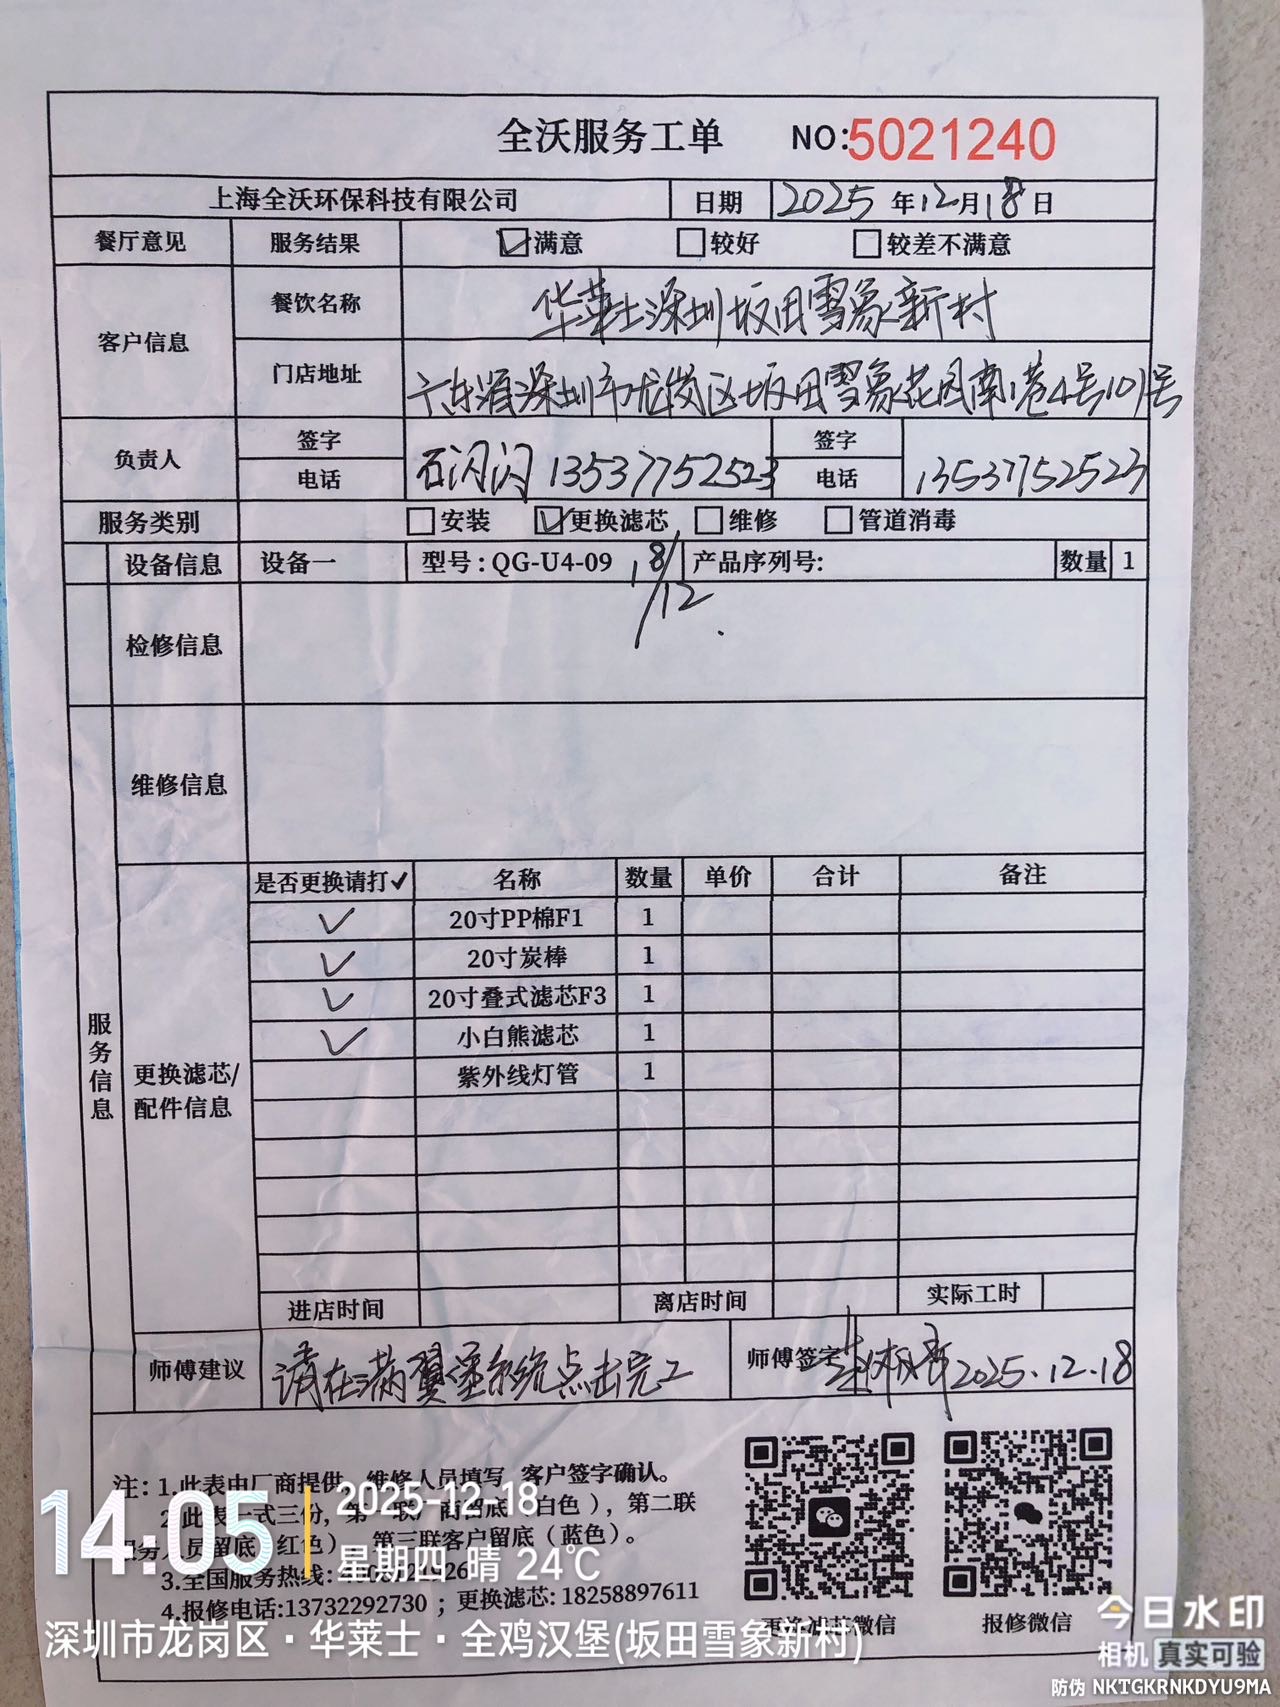 全沃服务工单 NO:5021240
上海全沃环保科技有限公司 日期 2025年12月18日
餐厅意见 服务结果 ☑满意 □较好 □较差不满意
客户信息 餐饮名称 华莱士深圳坂田雪象新村
门店地址 广东省深圳市龙岗区坂田雪象花园南1巷4号101号
负责人 签字 石闪闪 13537752523 签字
电话 电话 13537752523
服务类别 □安装 ☑更换滤芯 □维修 □管道消毒
设备信息 设备一 型号:QG-U4-09 18/12 产品序列号: 数量 1
检修信息
维修信息
服务信息
更换滤芯/配件信息
是否更换请打✓ 名称 数量 单价 合计 备注
✓ 20寸PP棉F1 1
✓ 20寸炭棒 1
✓ 20寸叠式滤芯F3 1
✓ 小白熊滤芯 1
紫外线灯管 1
进店时间 离店时间 实际工时
师傅建议 请在满翼堡系统点击完工 师傅签字 2025.12.18
注:1.此表由厂商提供,维修人员填写 客户签字确认。
2.此表一式三份,第一联厂商留底(白色),第二联
服务人员留底(红色),第三联客户留底(蓝色)。
3.全国服务热线:
4.报修电话:13732292730 ;更换滤芯:18258897611
更换滤芯微信 报修微信
14:05 2025-12-18
星期四 晴 24℃
深圳市龙岗区·华莱士·全鸡汉堡(坂田雪象新村)
今日水印
相机 真实可验
防伪 NKTGKRNKDYU9MA